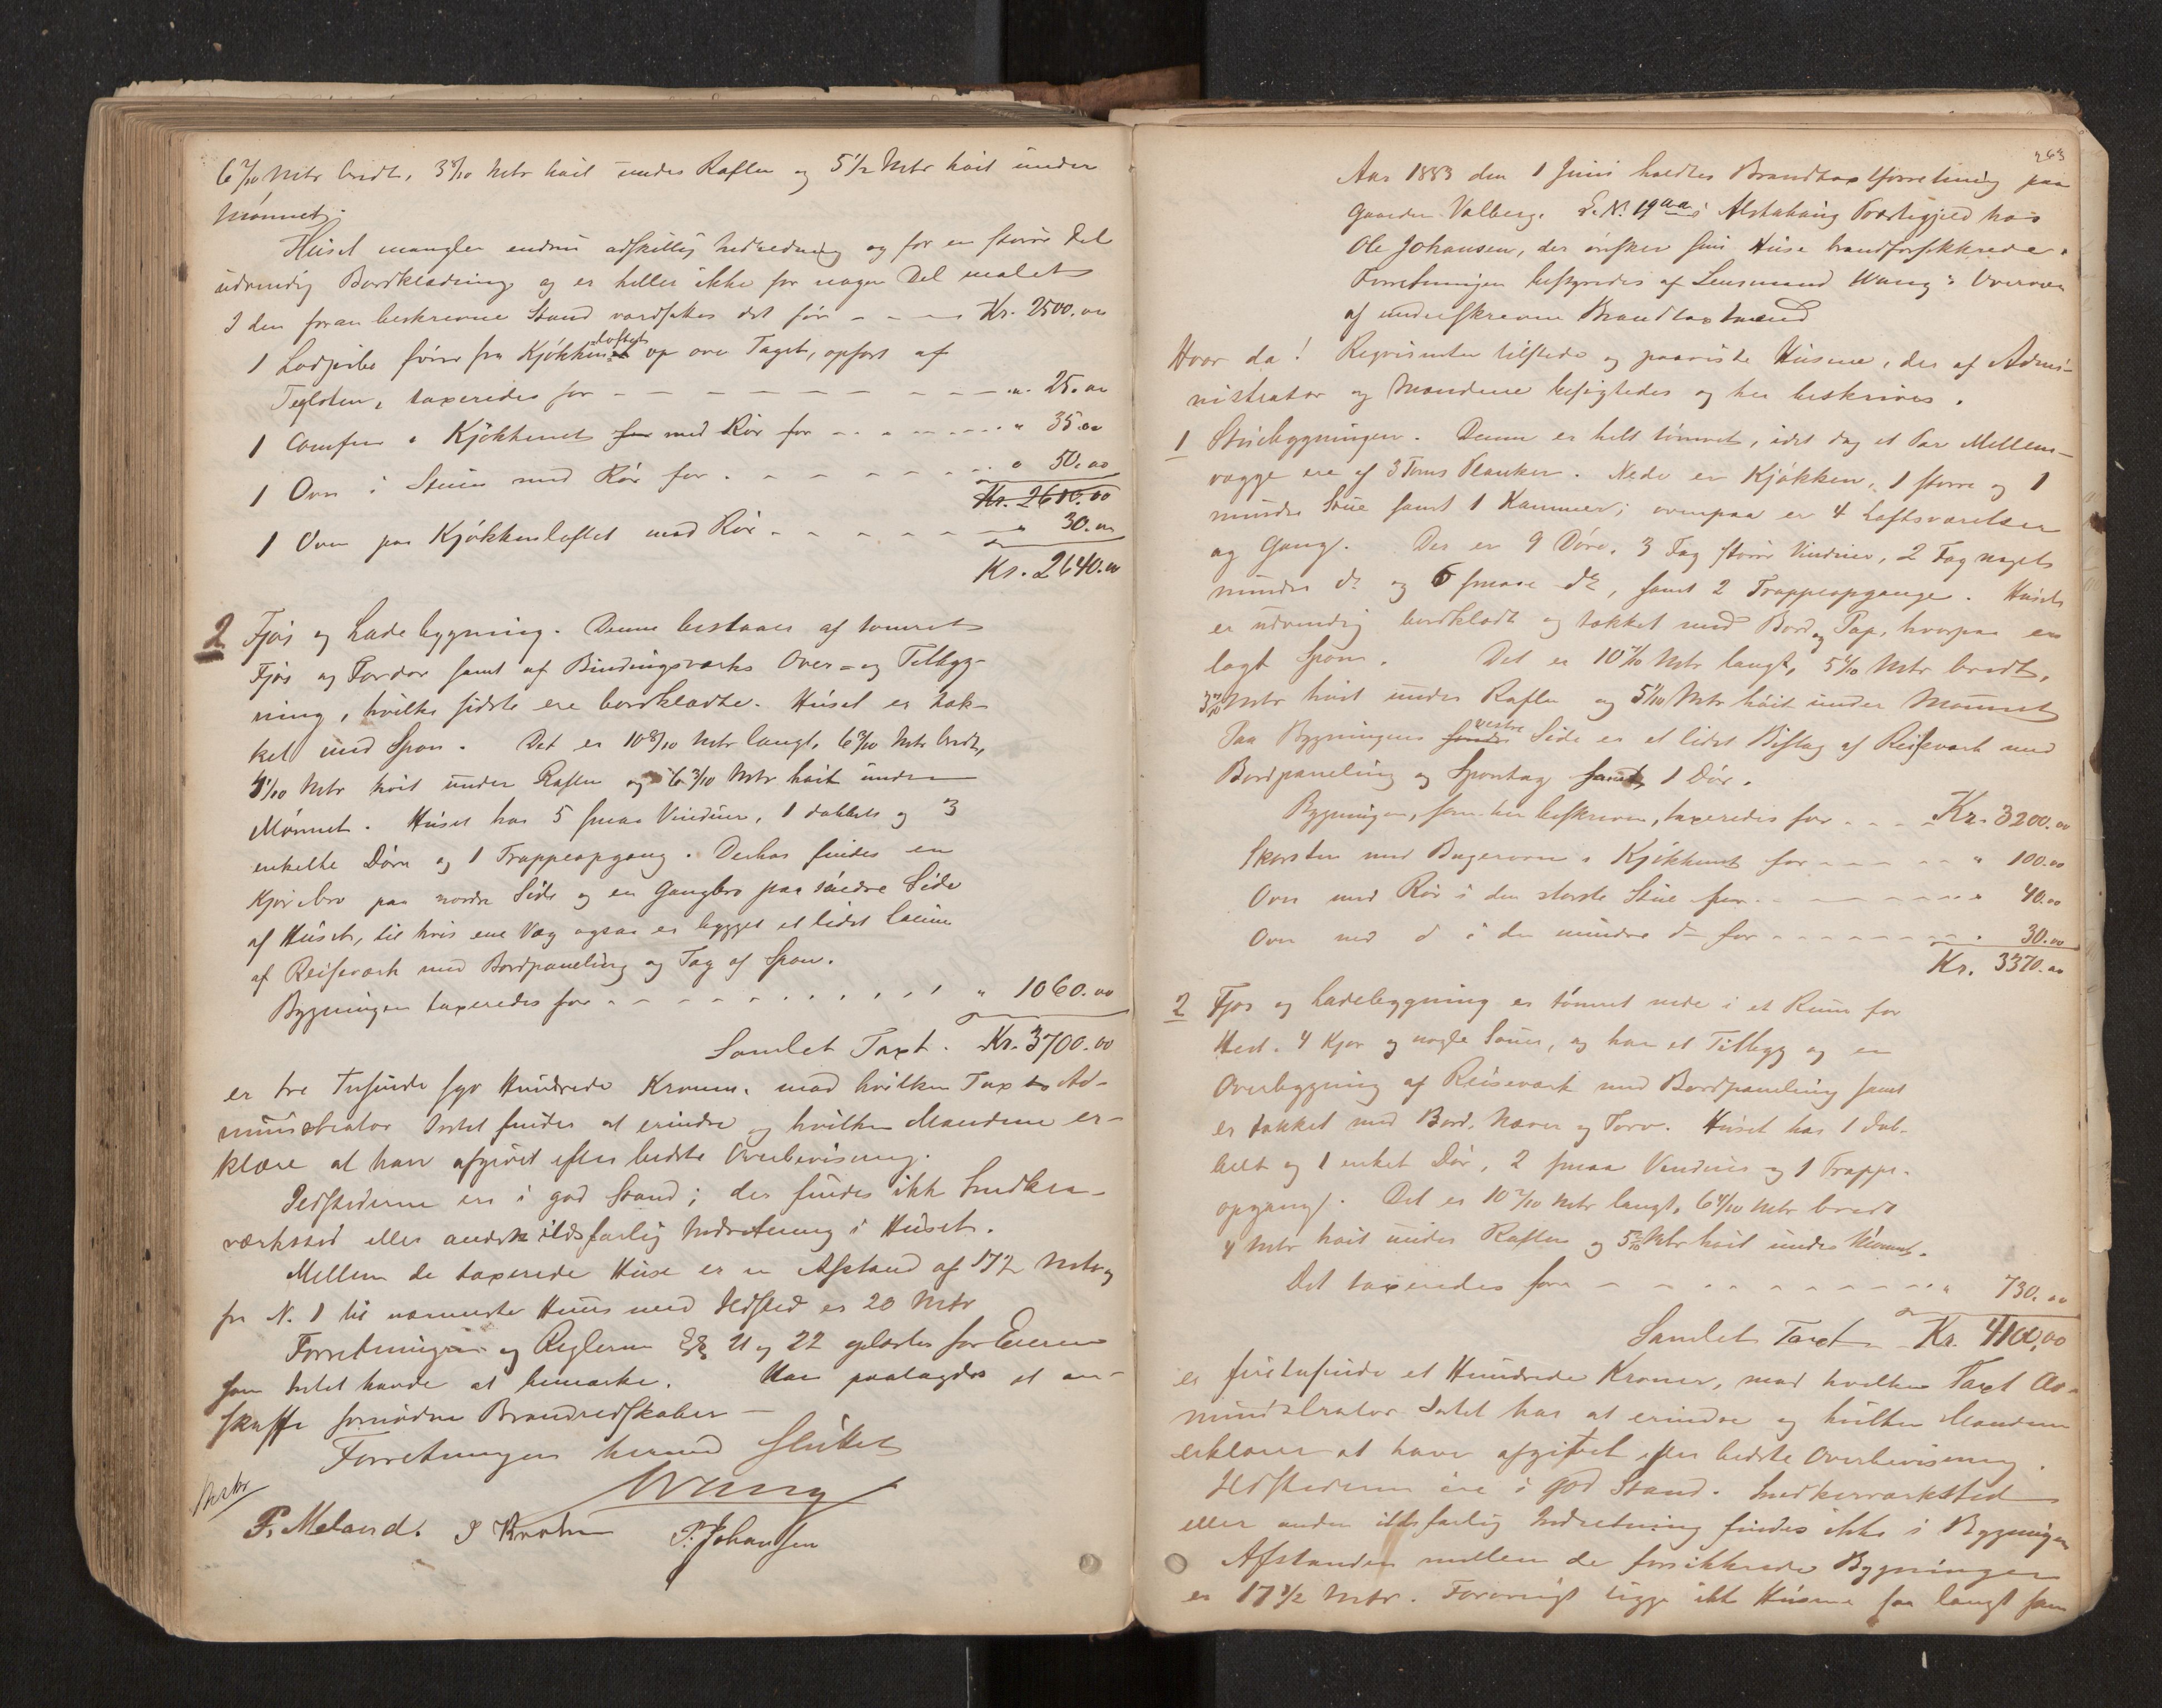 6 7/10 Mtr bredt, 3 8/10 Mtr høit under Raften og 5 1/2 Mtr høit under
Mønnet.
Huset mangler endnu adskillig Indredning og for en større Del
udvendig Bordklædning og er heller ikke for nogen Del malet
I den foran beskrevne Stand værdsættes det for - - - Kr. 2500.00
1 Ladpibe fører fra Kjøkkenloftet op over Taget, opført af
Teglsten, taxeredes for - - - - - - - - " 25.00
1 Comfur i Kjøkkenet med Rør for - - - - - " 35.00
1 Ovn i Stuen med Rør for - - - - - - " 50.00
Kr. 2610.00
1 Ovn paa Kjøkkenloftet med Rør - - - - - " 30.00
Kr. 2640.00
2 Fjøs og Ladebygning. Denne bestaaer af tømret
Fjøs og Fordor samt af Bindingsværks Over- og Tilbyg-
ning, hvilke sidste ere bordklædte. Huset er tæk-
ket med Spon. Det er 10 8/10 Mtr langt, 6 3/10 Mtr bredt,
4 1/10 Mtr høit under Raften og 6 3/10 Mtr høit under
Mønnet. Huset har 5 smaa Vinduer, 1 dobbelt og 3
enkelte Døre og 1 Trappeopgang. Derhos findes en
Kjørebro paa nordre Side og en Gangbro paa søndre Side
af Huset, til hvis ene Væg ogsaa er bygget et lidet
af Reisværk med Bordpaneling og Tag af Spon.
Bygningen taxeredes for - - - - - - - - " 1060.00
Samlet Taxt. Kr. 3700.00
er tre Tusinde syv Hundrede Kroner, mod hvilken Taxt Ad-
ministrator Intet findes at erindre og hvilken Mændene er-
klære at have afgivet efter bedste Overbevisning.
Ildstederne er i god Stand; der findes ikke Snedker-
værksted eller anden ildsfarlig Indretning i Huset.
Mellem de taxerede Huse er en Afstand af 17 1/2 Mtr og
fra N. 1 til nærmeste Huus med Ildsted er 20 Mtr
Forretningen og Reglerne §§ 21 og 22 oplæstes for Eieren
som Intet havde at bemærke. Han paalagdes at an-
skaffe fornødne Brandredskaber -
Forretningen hermed sluttet
Wang
P. Meland. P. Johansen
263
Aar 1883 den 1 Juni holdtes Brandtaxtforretning paa
Gaarden Valberg. L.N. 19 aa i Alstahaug Præstegjeld hos
Ole Johansen, der ønsker sine Huse brandforsikkrede.
Forretningen bestyredes af Lensmand Wang i Overvær
af underskrevne Brandtaxtmænd
Hvor da! Reqvirenten tilstede og paaviste Husene, der af Admi-
nistrator og Mændene besigtedes og her beskrives.
1 Stuebygningen. Denne er helt tømret, idet dog et Par Mellem-
vægge ere af 3 Toms Planker. Nede er Kjøkken, 1 større og 1
mindre Stue samt 1 Kammer; ovenpaa er 4 Loftsværelser
og Gang. Der er 9 Døre, 3 Fag større Vinduer, 2 Fag noget
mindre do og 6 smaae do, samt 2 Trappeopgange. Huset
er udvendig bordklædt og tækket med Bord og Pap, hvorpaa er
lagt Spon. Det er 10 7/10 Mtr langt, 5 6/10 Mtr bredt,
3 7/10 Mtr høit under Raften og 5 1/10 Mtr høit under Mønnet
Paa Bygningens vestre Side er et lidet Bislag af Reisværk med
Bordpaneling og Spontag samt 1 Dør.
Bygningen, som her beskreven, taxeredes for - - - Kr. 3200.00
Skorsten med Bagerovn i Kjøkkenet for - - - - - " 100.00
Ovn med Rør i den største Stue for - - - - - - " 40.00
Ovn med do i den mindre do for - - - - - - - " 30.00
Kr. 3370.00
2 Fjøs og Ladebygning er tømret nede i et Rum for
Hest. 4 Kjør og nogle Sauer, og har et Tilbyg og en
Overbygning af Reisværk med Bordpaneling samt
er tækket med Bord, Næver og Torv. Huset har 1 dob-
belt og 1 enkelt Dør, 2 smaa Vinduer og 1 Trappe-
opgang. Det er 10 2/10 Mtr langt, 6 4/10 Mtr bredt
4 Mtr høit under Raften og 5 5/10 Mtr høit under Mønnet.
Det taxeredes for - - - - - - - - - " 730.00
Samlet Taxt Kr. 4100,00
er firetusinde et Hundrede Kroner, mod hvilken Taxt Ad-
ministrator Intet har at erindre og hvilken Mændene
erklærer at have afgivet efter bedste Overbevisning.
Ildstederne ere i god Stand. Snedkerværksted
eller anden ildsfarlig Indretning findes ikke i Bygningen
Afstanden mellem de forsikkrede Bygninger
er 17 1/2 Mtr. Forøvrigt ligge ikke Husene saa langt fra